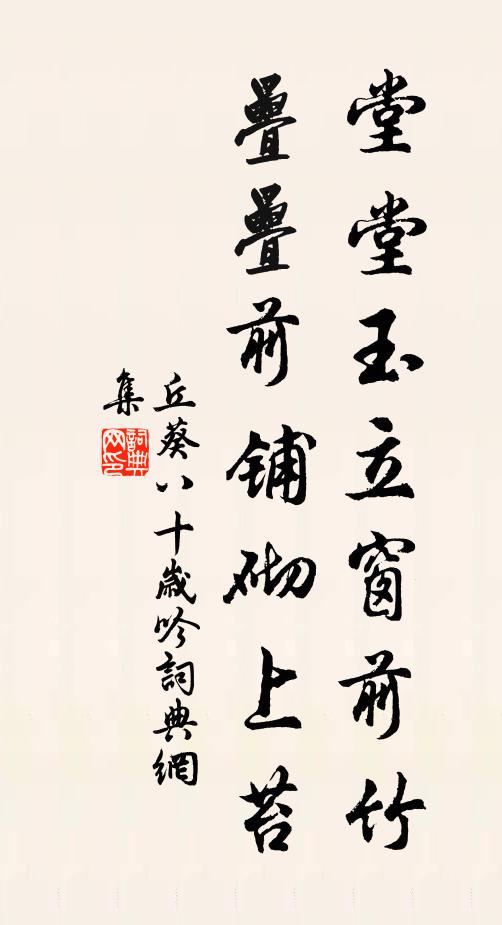 堂堂玉立窗前竹
疊疊前鋪砌上苔
丘葵八十歲吟詞典網
集
詞典
网印